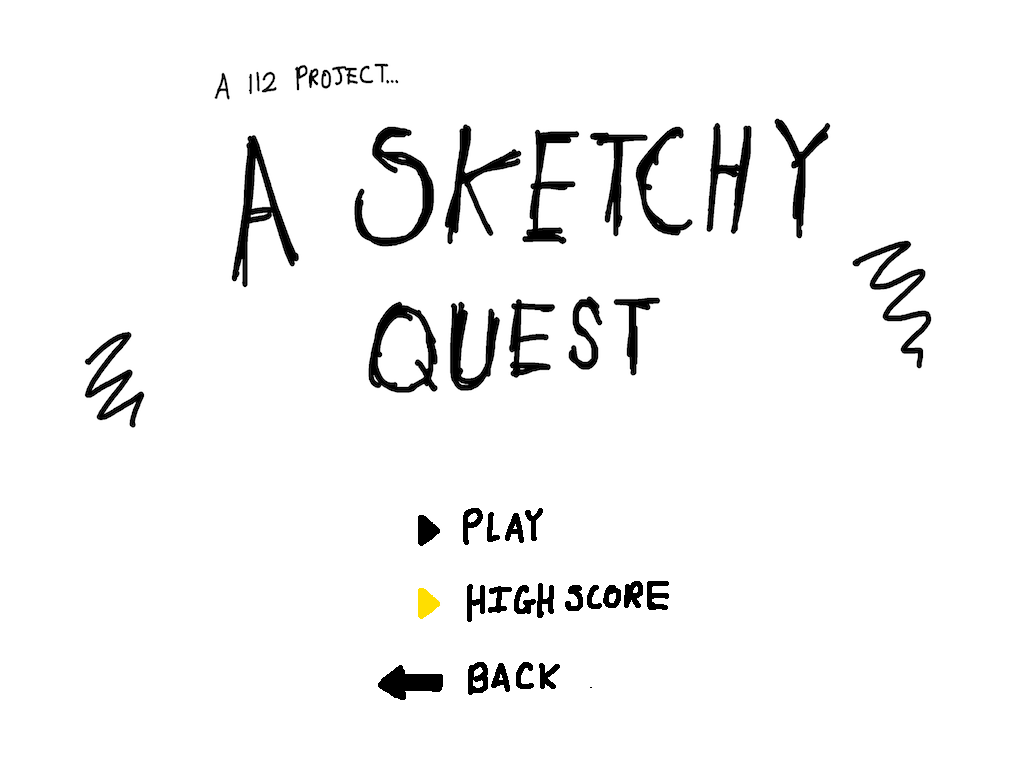 A 112 PROJECT...
A SKETCHY
QUEST
PLAY
HIGH SCORE
BACK